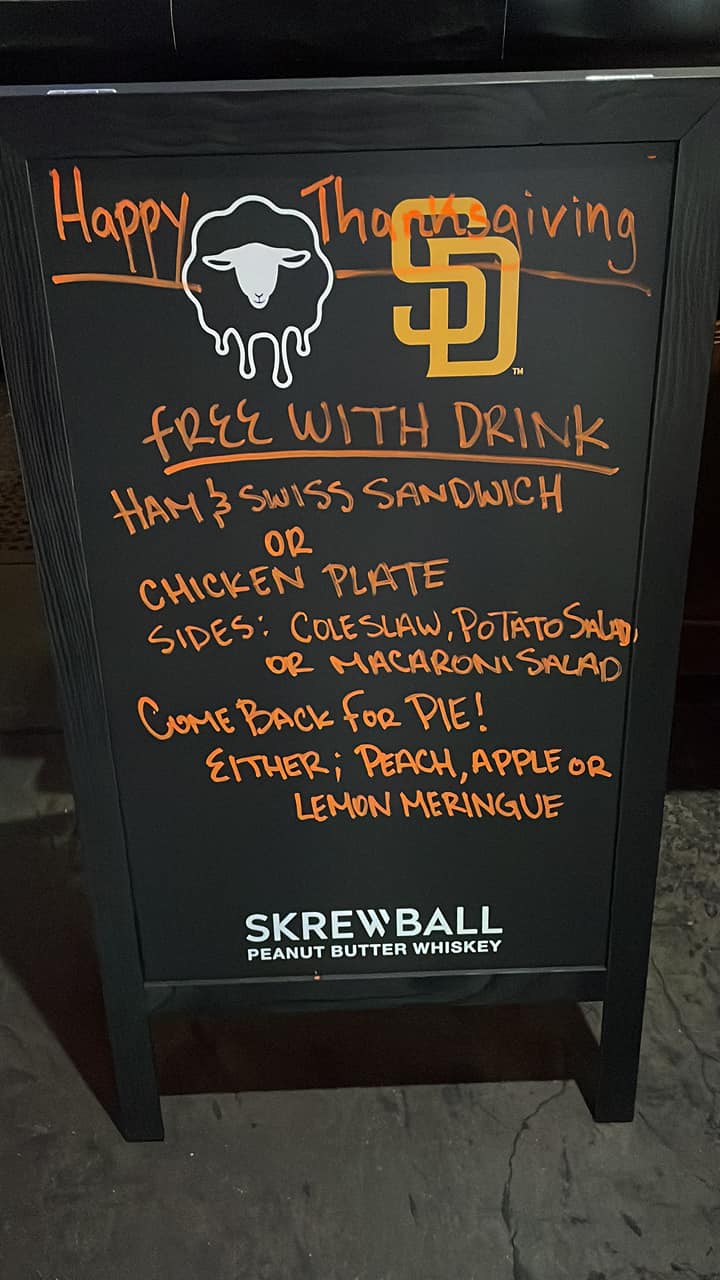 Happy Thanksgiving
SD
TM
FREE WITH DRINK
HAM & SWISS SANDWICH
OR
CHICKEN PLATE
SIDES: COLESLAW, POTATO SALAD,
OR MACARONI SALAD
COME BACK FOR PIE!
EITHER; PEACH, APPLE OR
LEMON MERINGUE
SKREWBALL
PEANUT BUTTER WHISKEY